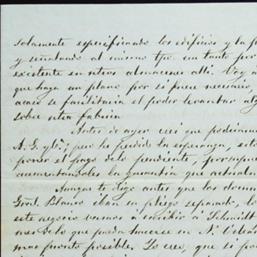 solamente especificando los edificios y la f
y señalando al mismo tpo. un tanto por
existente en otros almacenes alli. Voy a
que haga un plano por si fuese necesario,
acaso se facilitaria el poder levantar alg
sobre esta fabrica.
Antes de ayer crei que podriamos
pero he perdido la esperanza,
poner el pago de lo pendiente,
aumentandoles la garantia que actualm
Aunque te digo antes que los docum
Gral. Blanco iban en pliego separado, lo
este negocio vamos á escribir á Schmidt
nos de lo que pueda hacerse en N.
mas pronto posible. Yo creo, que si po